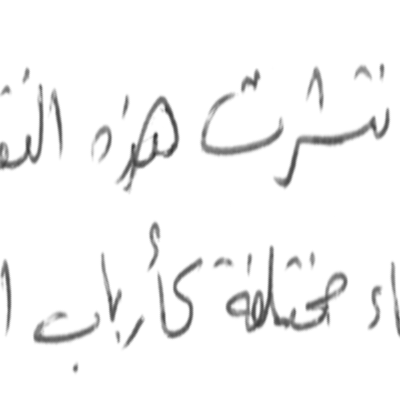 نتشرت هذه النق
اء مختلفة كأرباب ا